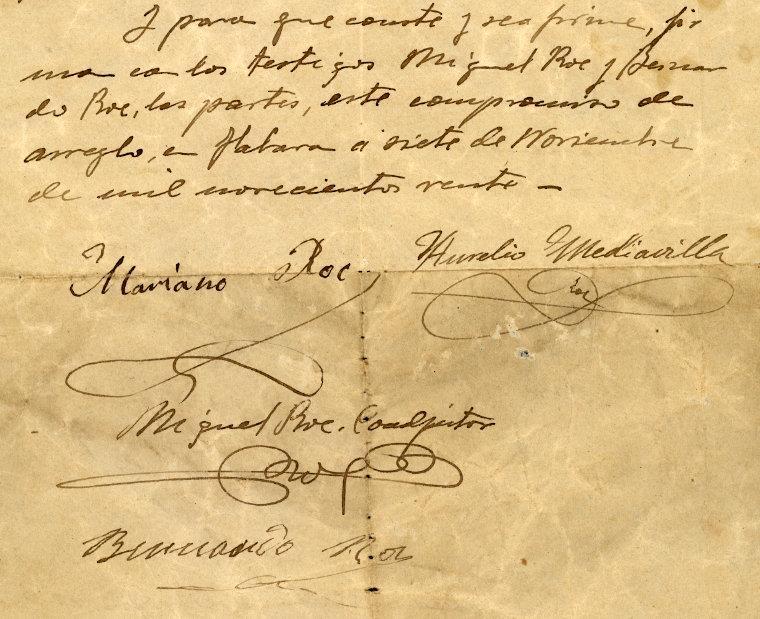 Y para que conste y sea firme, fir
man con los testigos Miguel Roc y Bernar
do Roc, las partes, este compromiso de
arreglo, en Fabara a siete de Noviembre
de mil novecientos veinte —
Mariano Roc
Aurelio Mediavilla
Roc
Miguel Roc. Coadjutor
Bernardo Roc